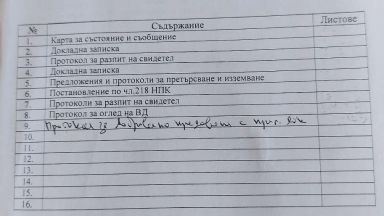 № Съдържание Листове
1. Карта за състояние и съобщение
2. Докладна записка
3. Протокол за разпит на свидетел
4. Докладна записка
5. Предложения и протоколи за претърсване и изземване
6. Постановление по чл.218 НПК
7. Протоколи за разпит на свидетел
8. Протокол за оглед на ВД
9. Протокол за доброволно предаване с
10.
11.
12.
13.
14.
15.
16.